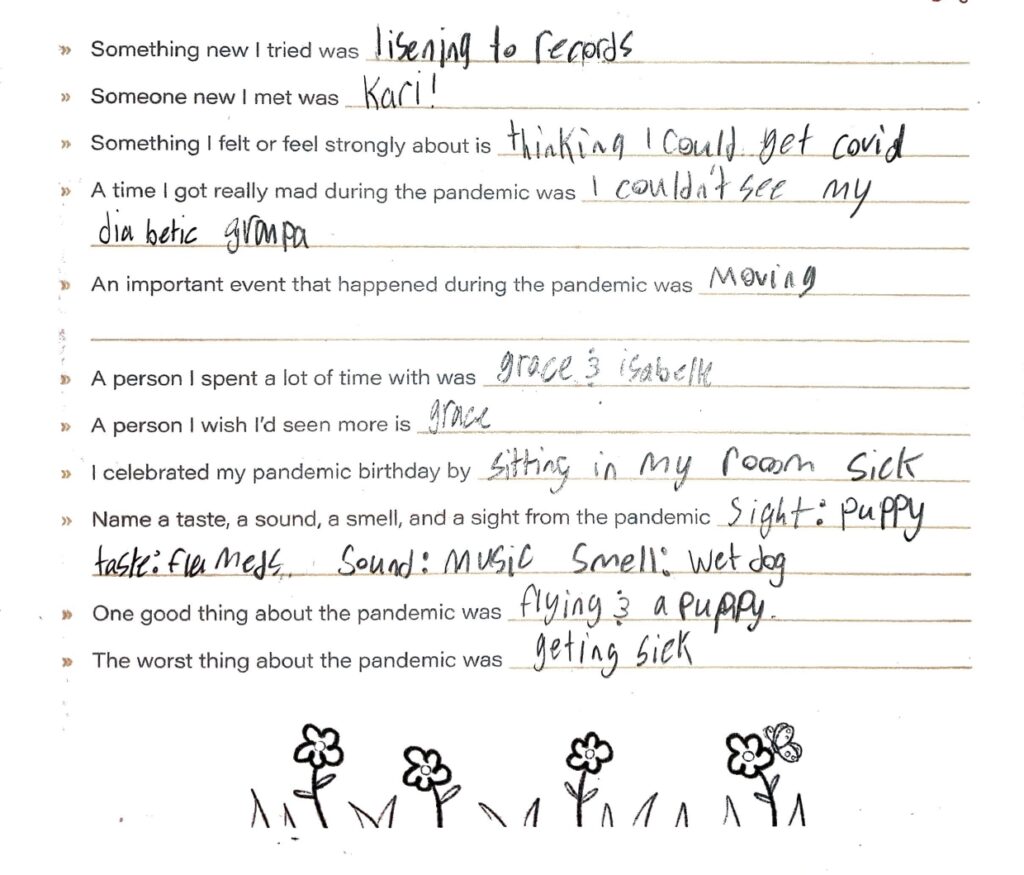 » Something new I tried was lisening to records
» Someone new I met was Kari!
» Something I felt or feel strongly about is thinking I could get covid
» A time I got really mad during the pandemic was I couldn't see my
diabetic grampa
» An important event that happened during the pandemic was Moving
» A person I spent a lot of time with was grace & isabelle
» A person I wish I'd seen more is grace
» I celebrated my pandemic birthday by sitting in my rooom sick
» Name a taste, a sound, a smell, and a sight from the pandemic Sight: puppy
taste: flu Meds. Sound: Music Smell: wet dog
» One good thing about the pandemic was flying & a puppy.
» The worst thing about the pandemic was geting sick